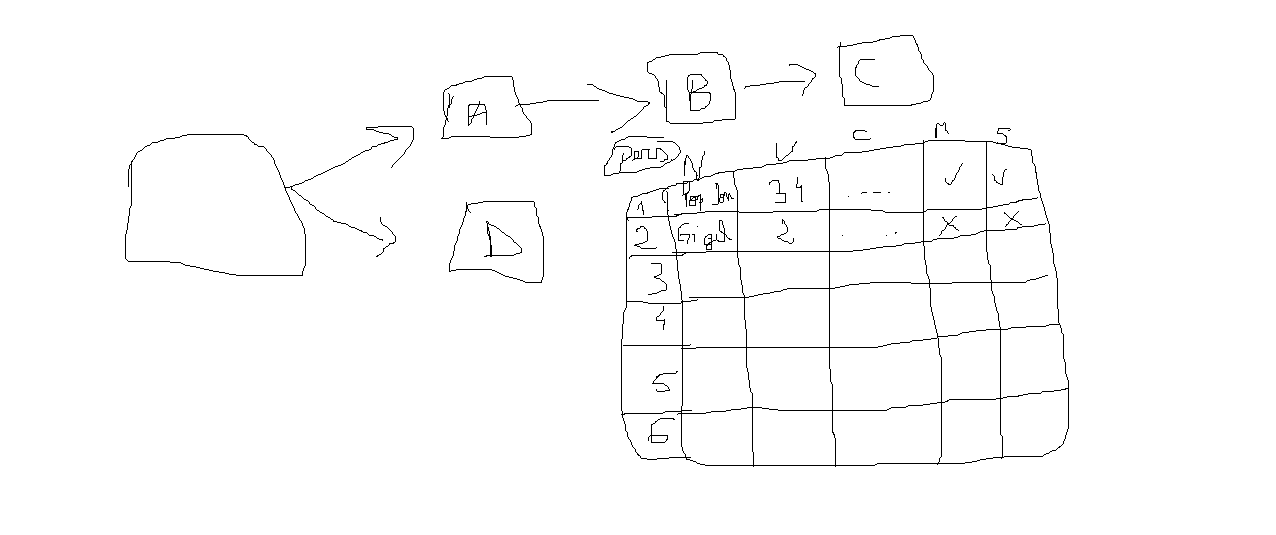 A
B
C
D
Pers
N V C M S
1 Pop Ion 34 .... ✓ ✓
2 Gigel 2 . .. X X
3
4
5
6